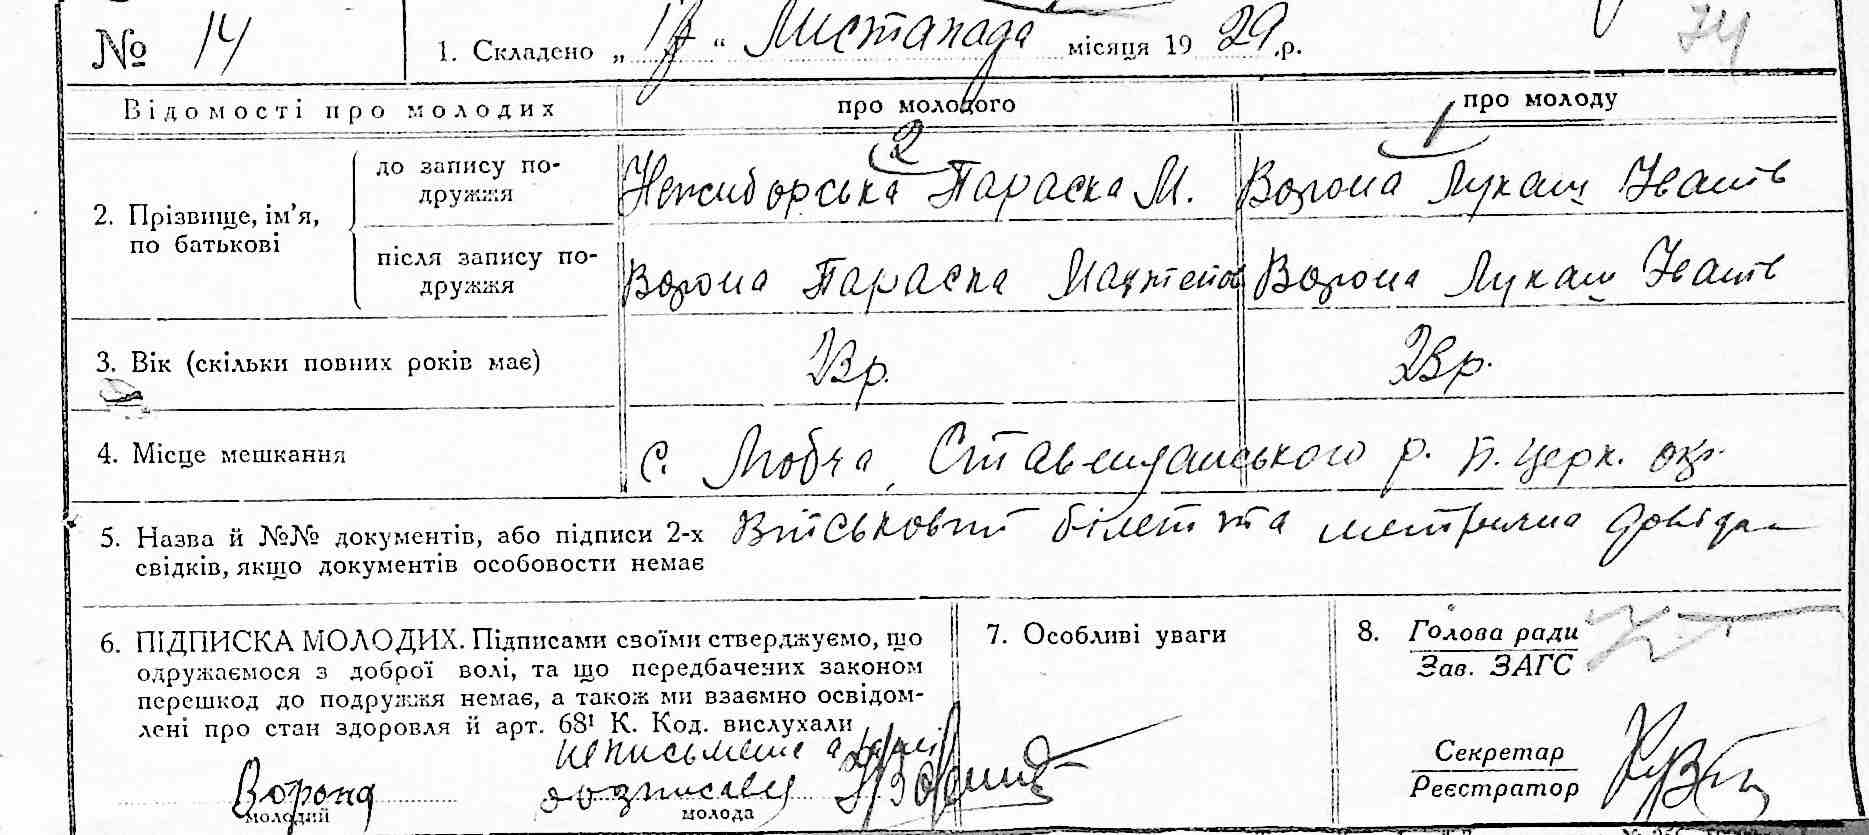 № 14
1. Складено „17“ Листапада місяця 1929 .р.
74
Відомості про молодих
про молодого
про молоду
2
1
2. Прізвище, ім’я, по батькові
до запису подружжя
Нежиборська Параска М.
Ворона Лукаш Іванів
після запису подружжя
Ворона Параска
Ворона Лукаш Іванів
3. Вік (скільки повних років має)
р.
р.
4. Місце мешкання
с. Любча, Ставищанського р. Б. Церк. окр.
5. Назва й №№ документів, або підписи 2-х
свідків, якщо документів особовости немає
Військовий білет та метрична довідка
6. ПІДПИСКА МОЛОДИХ. Підписами своїми стверджуємо, що
одружаємося з доброї волі, та що передбачених законом
перешкод до подружжя немає, а також ми взаємно освідом-
лені про стан здоровля й арт. 68¹ К. Код. вислухали
неписьмена а
Ворона
розписавсь
молодий
молода
7. Особливі уваги
8. Голова ради
Зав. ЗАГС
Секретар
Реєстратор